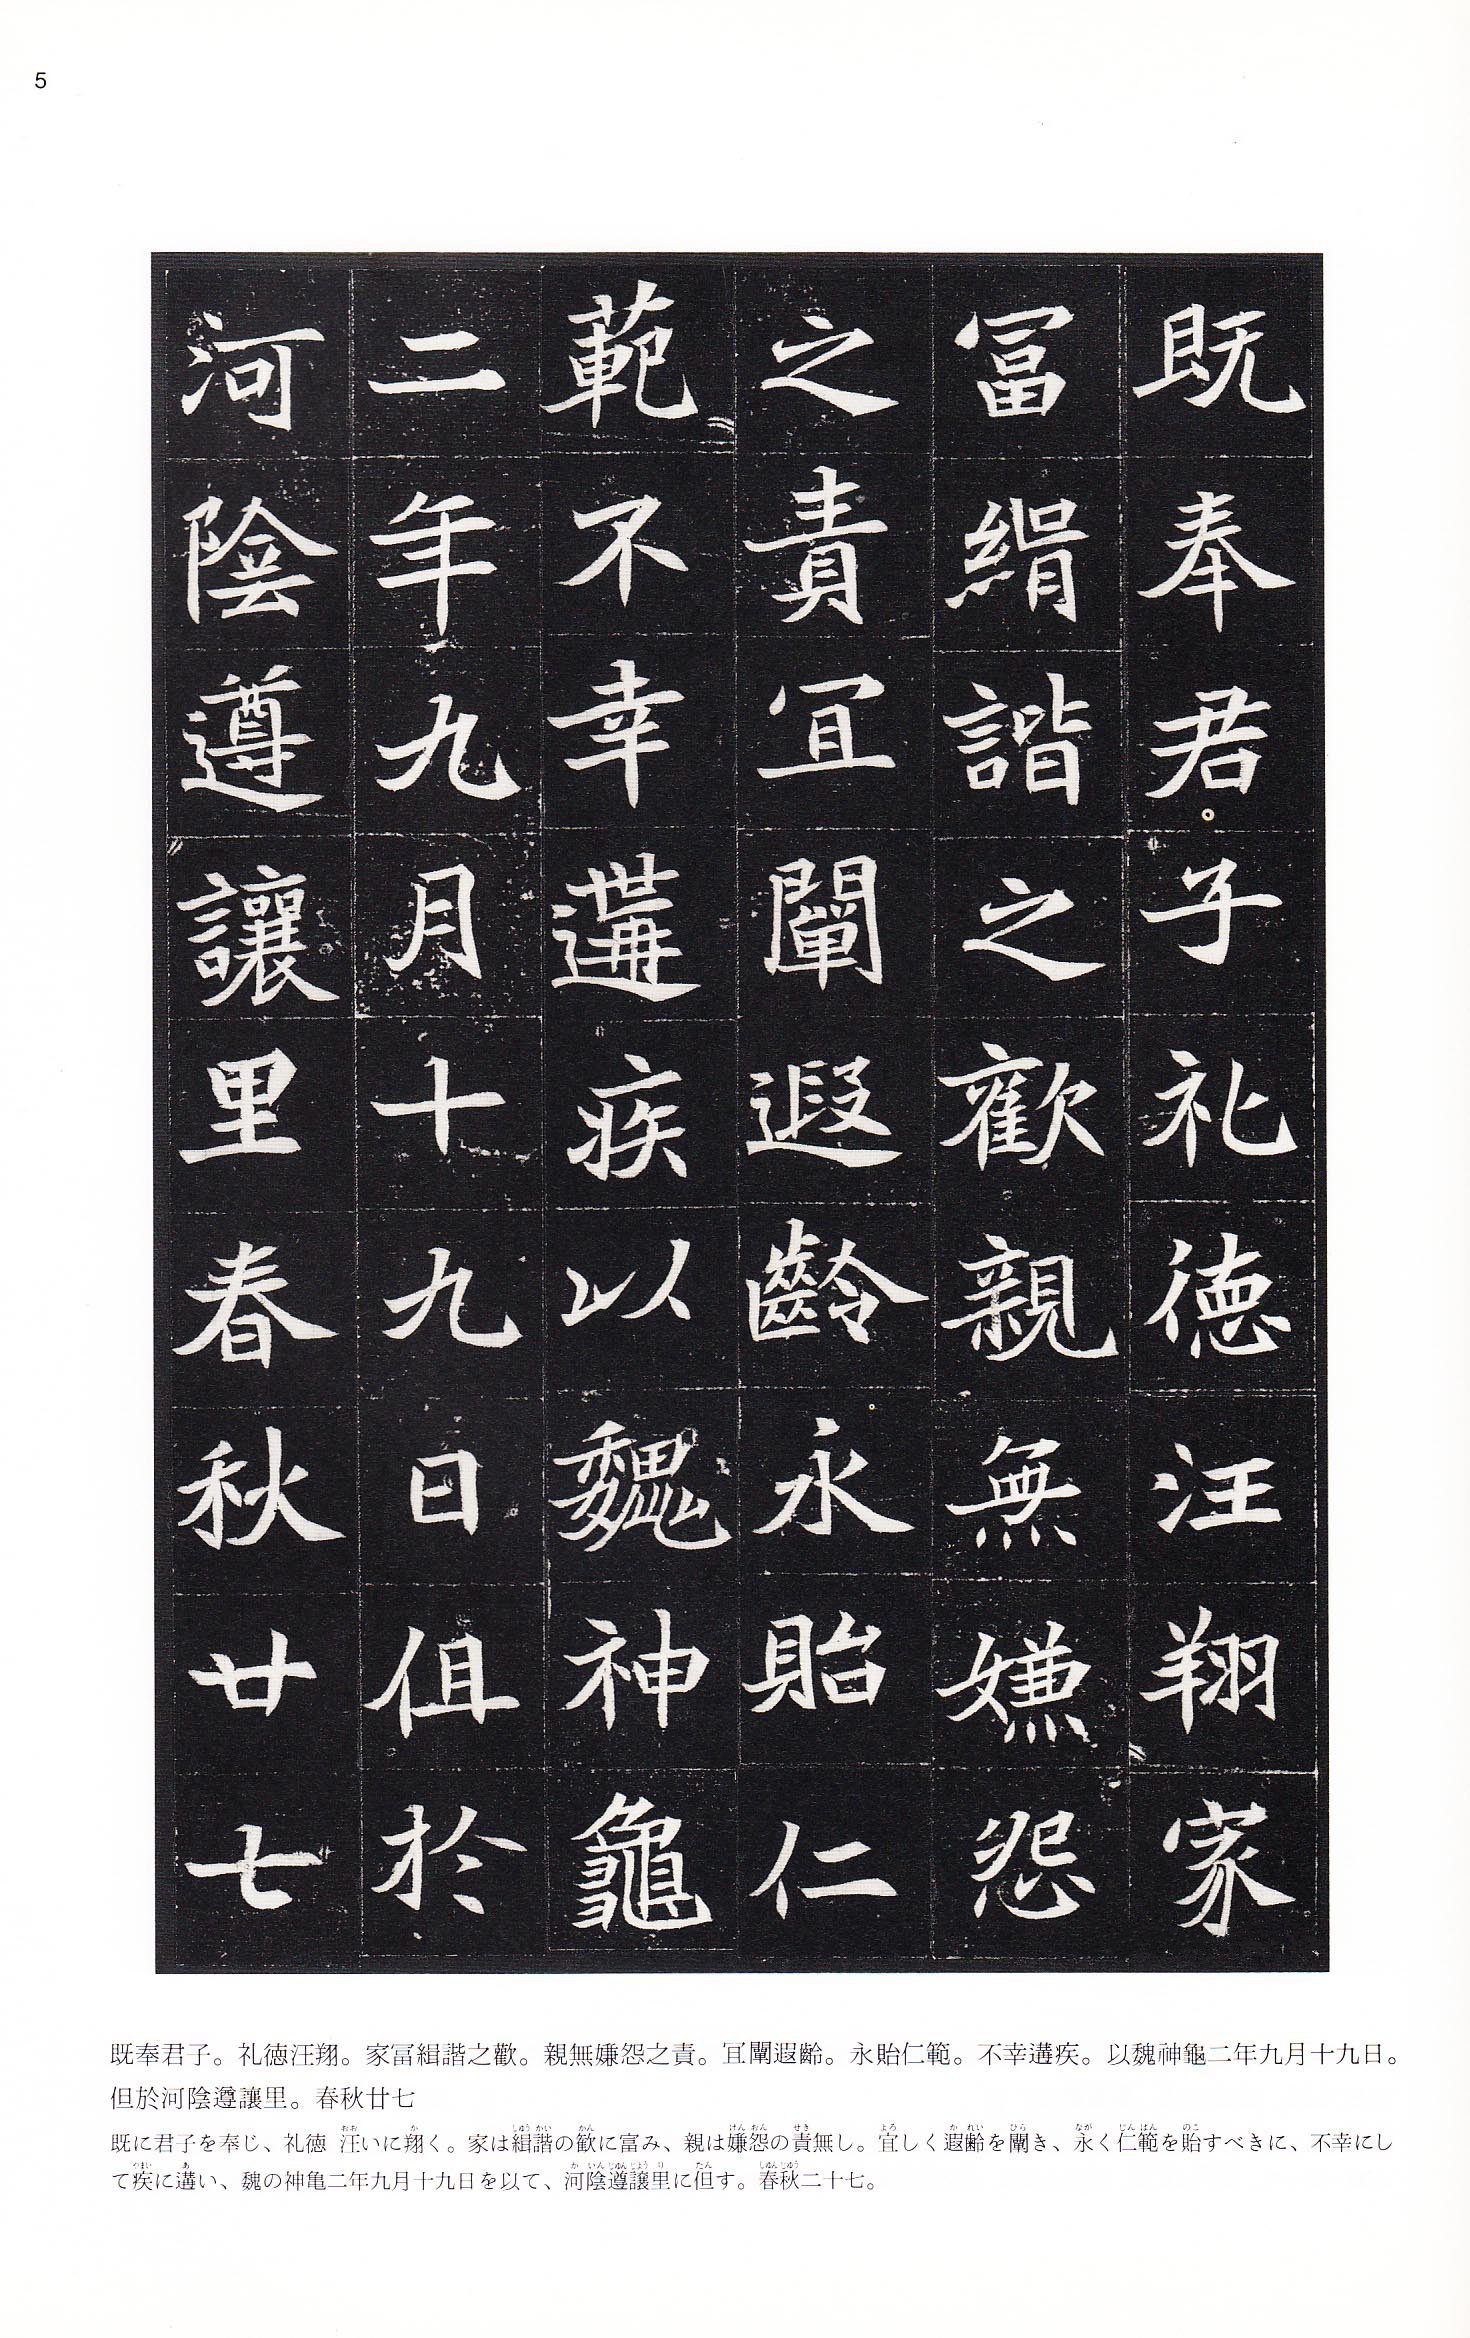 5
既奉君子礼徳汪翔家
冨緝諧之歡親無嫌怨
之責冝闡遐齡永貽仁
範不幸遘疾以魏神龜
二年九月十九日但於
河陰遵讓里春秋廿七
既奉君子。礼徳汪翔。家冨緝諧之歡。親無嫌怨之責。冝闡遐齡。永貽仁範。不幸遘疾。以魏神龜二年九月十九日。
但於河陰遵讓里。春秋廿七
既に君子を奉じ、礼徳 汪いに翔く。家は緝諧の歓に富み、親は嫌怨の責無し。宜しく遐齢を闡き、永く仁範を貽すべきに、不幸にし
て疾に遘い、魏の神亀二年九月十九日を以て、河陰遵譲里に但す。春秋二十七。